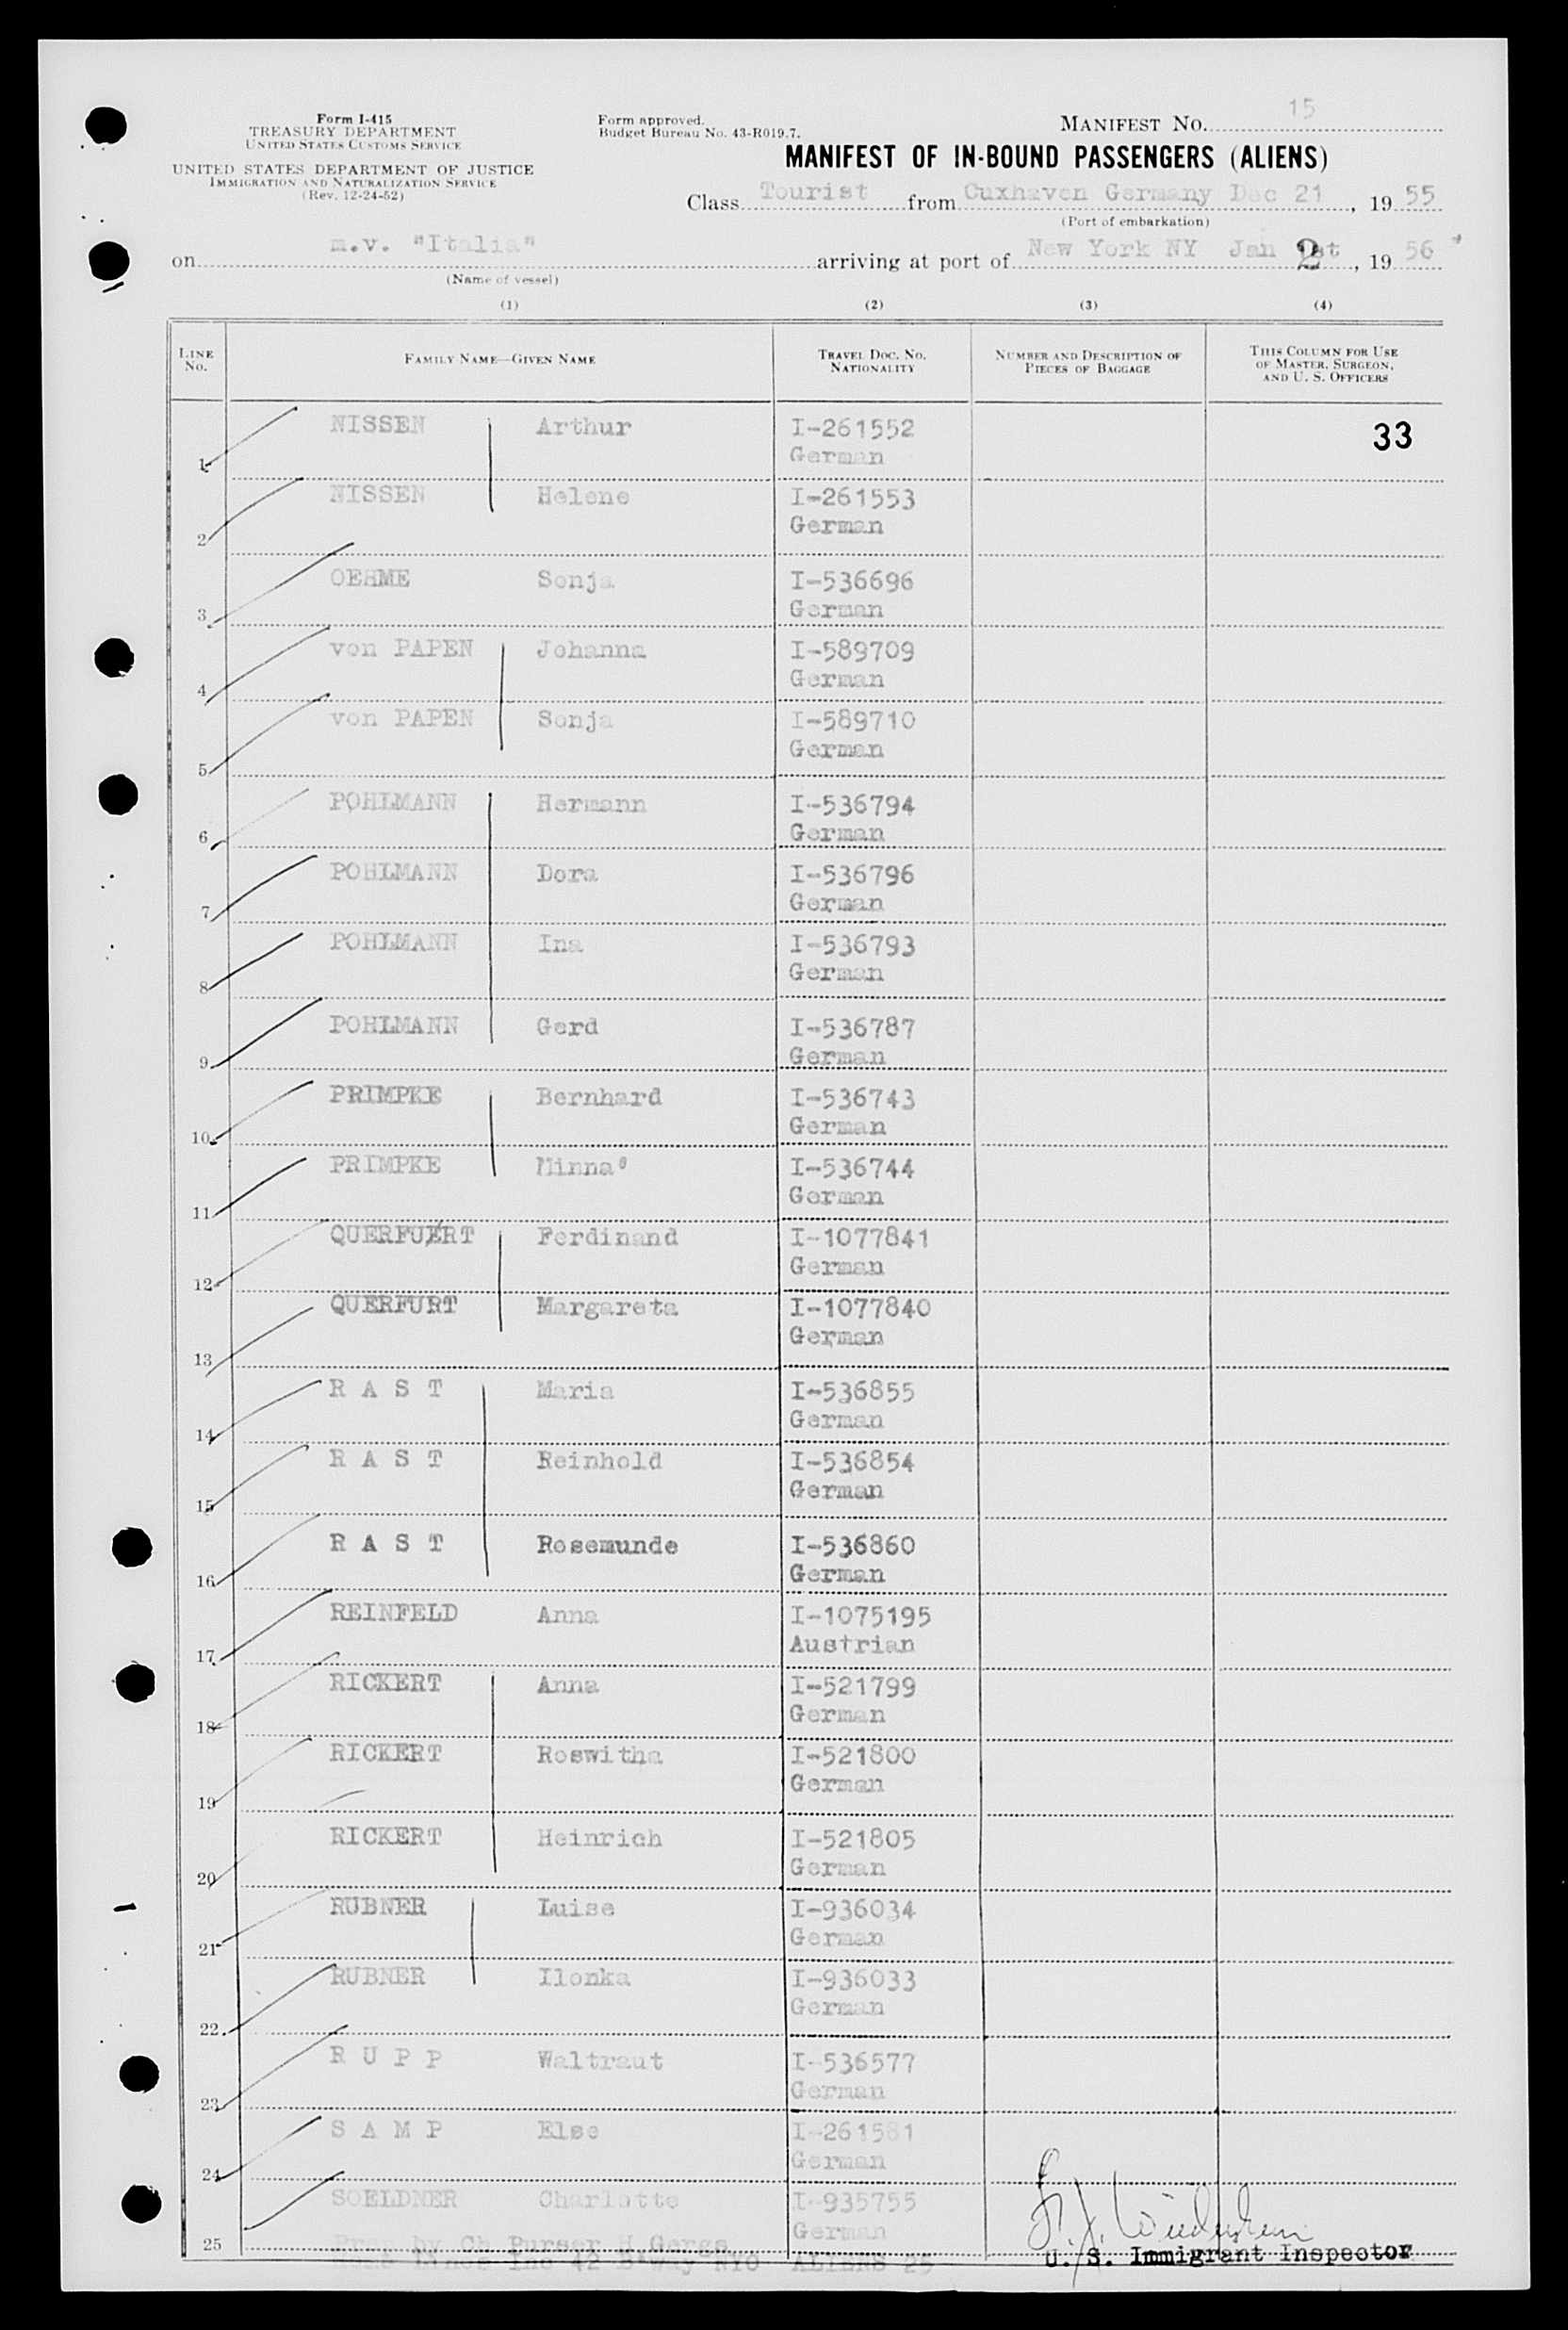 Form I-415
TREASURY DEPARTMENT
UNITED STATES CUSTOMS SERVICE
UNITED STATES DEPARTMENT OF JUSTICE
IMMIGRATION AND NATURALIZATION SERVICE
(Rev. 12-24-52)
Form approved.
Budget Bureau No. 43-R019.7.
MANIFEST NO. 15
MANIFEST OF IN-BOUND PASSENGERS (ALIENS)
Class Tourist from Cuxhaven Germany Dec 21, 19 55
(Port of embarkation)
on m.v. "Italia" arriving at port of New York NY Jan 2, 19 56
(Name of vessel)
(1) (2) (3) (4)
LINE No. FAMILY NAME—GIVEN NAME TRAVEL DOC. NO. NATIONALITY NUMBER AND DESCRIPTION OF PIECES OF BAGGAGE THIS COLUMN FOR USE OF MASTER, SURGEON, AND U. S. OFFICERS
33
1 NISSEN Arthur I-261552
German
2 NISSEN Helene I-261553
German
3 OEHME Sonja I-536696
German
4 von PAPEN Johanna I-589709
German
5 von PAPEN Sonja I-589710
German
6 POHLMANN Hermann I-536794
German
7 POHLMANN Dora I-536796
German
8 POHLMANN Ina I-536793
German
9 POHLMANN Gerd I-536787
German
10 PRIMPKE Bernhard I-536743
German
11 PRIMPKE Minna I-536744
German
12 QUERFUERT Ferdinand I-1077841
German
13 QUERFURT Margareta I-1077840
German
14 R A S T Maria I-536855
German
15 R A S T Reinhold I-536854
German
16 R A S T Rosemunde I-536860
German
17 REINFELD Anna I-1075195
Austrian
18 RICKERT Anna I-521799
German
19 RICKERT Roswitha I-521800
German
20 RICKERT Heinrich I-521805
German
21 RUBNER Luise I-936034
German
22 RUBNER Ilonka I-936033
German
23 R U P P Waltraut I-536577
German
24 S A M P Else I-261581
German
25 SOELDNER Charlotte I-935755
German
by Ch Purser H Gergs
Lines Inc 42 B'way NYC ALIENS 25
U. S. Immigrant Inspector